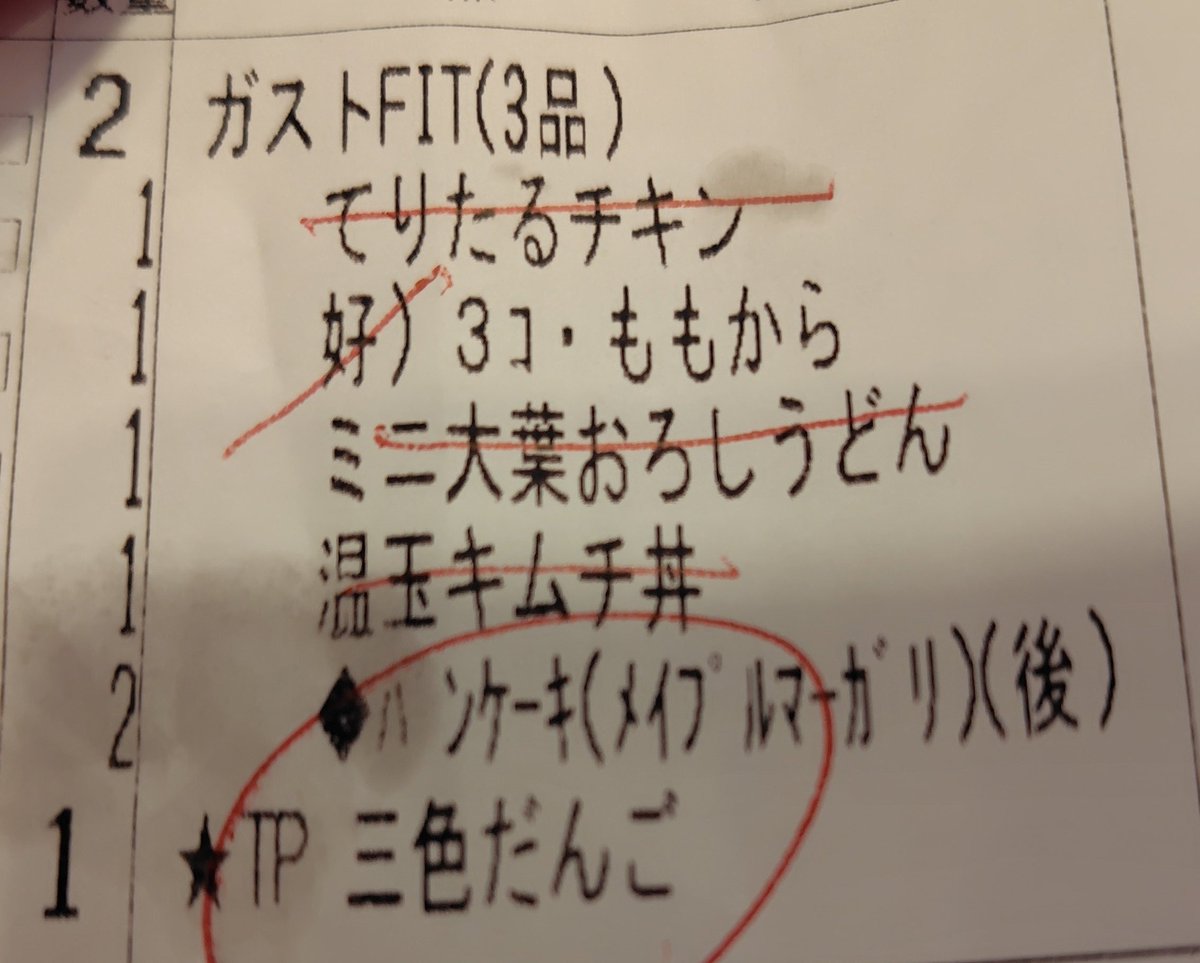 数量
2 ガストFIT(3品)
1 てりたるチキン
1 好) 3コ・ももから
1 ミニ大葉おろしうどん
1 温玉キムチ丼
2 ◆パンケーキ(メイプルマーガリ)(後)
1 ★TP 三色だんご